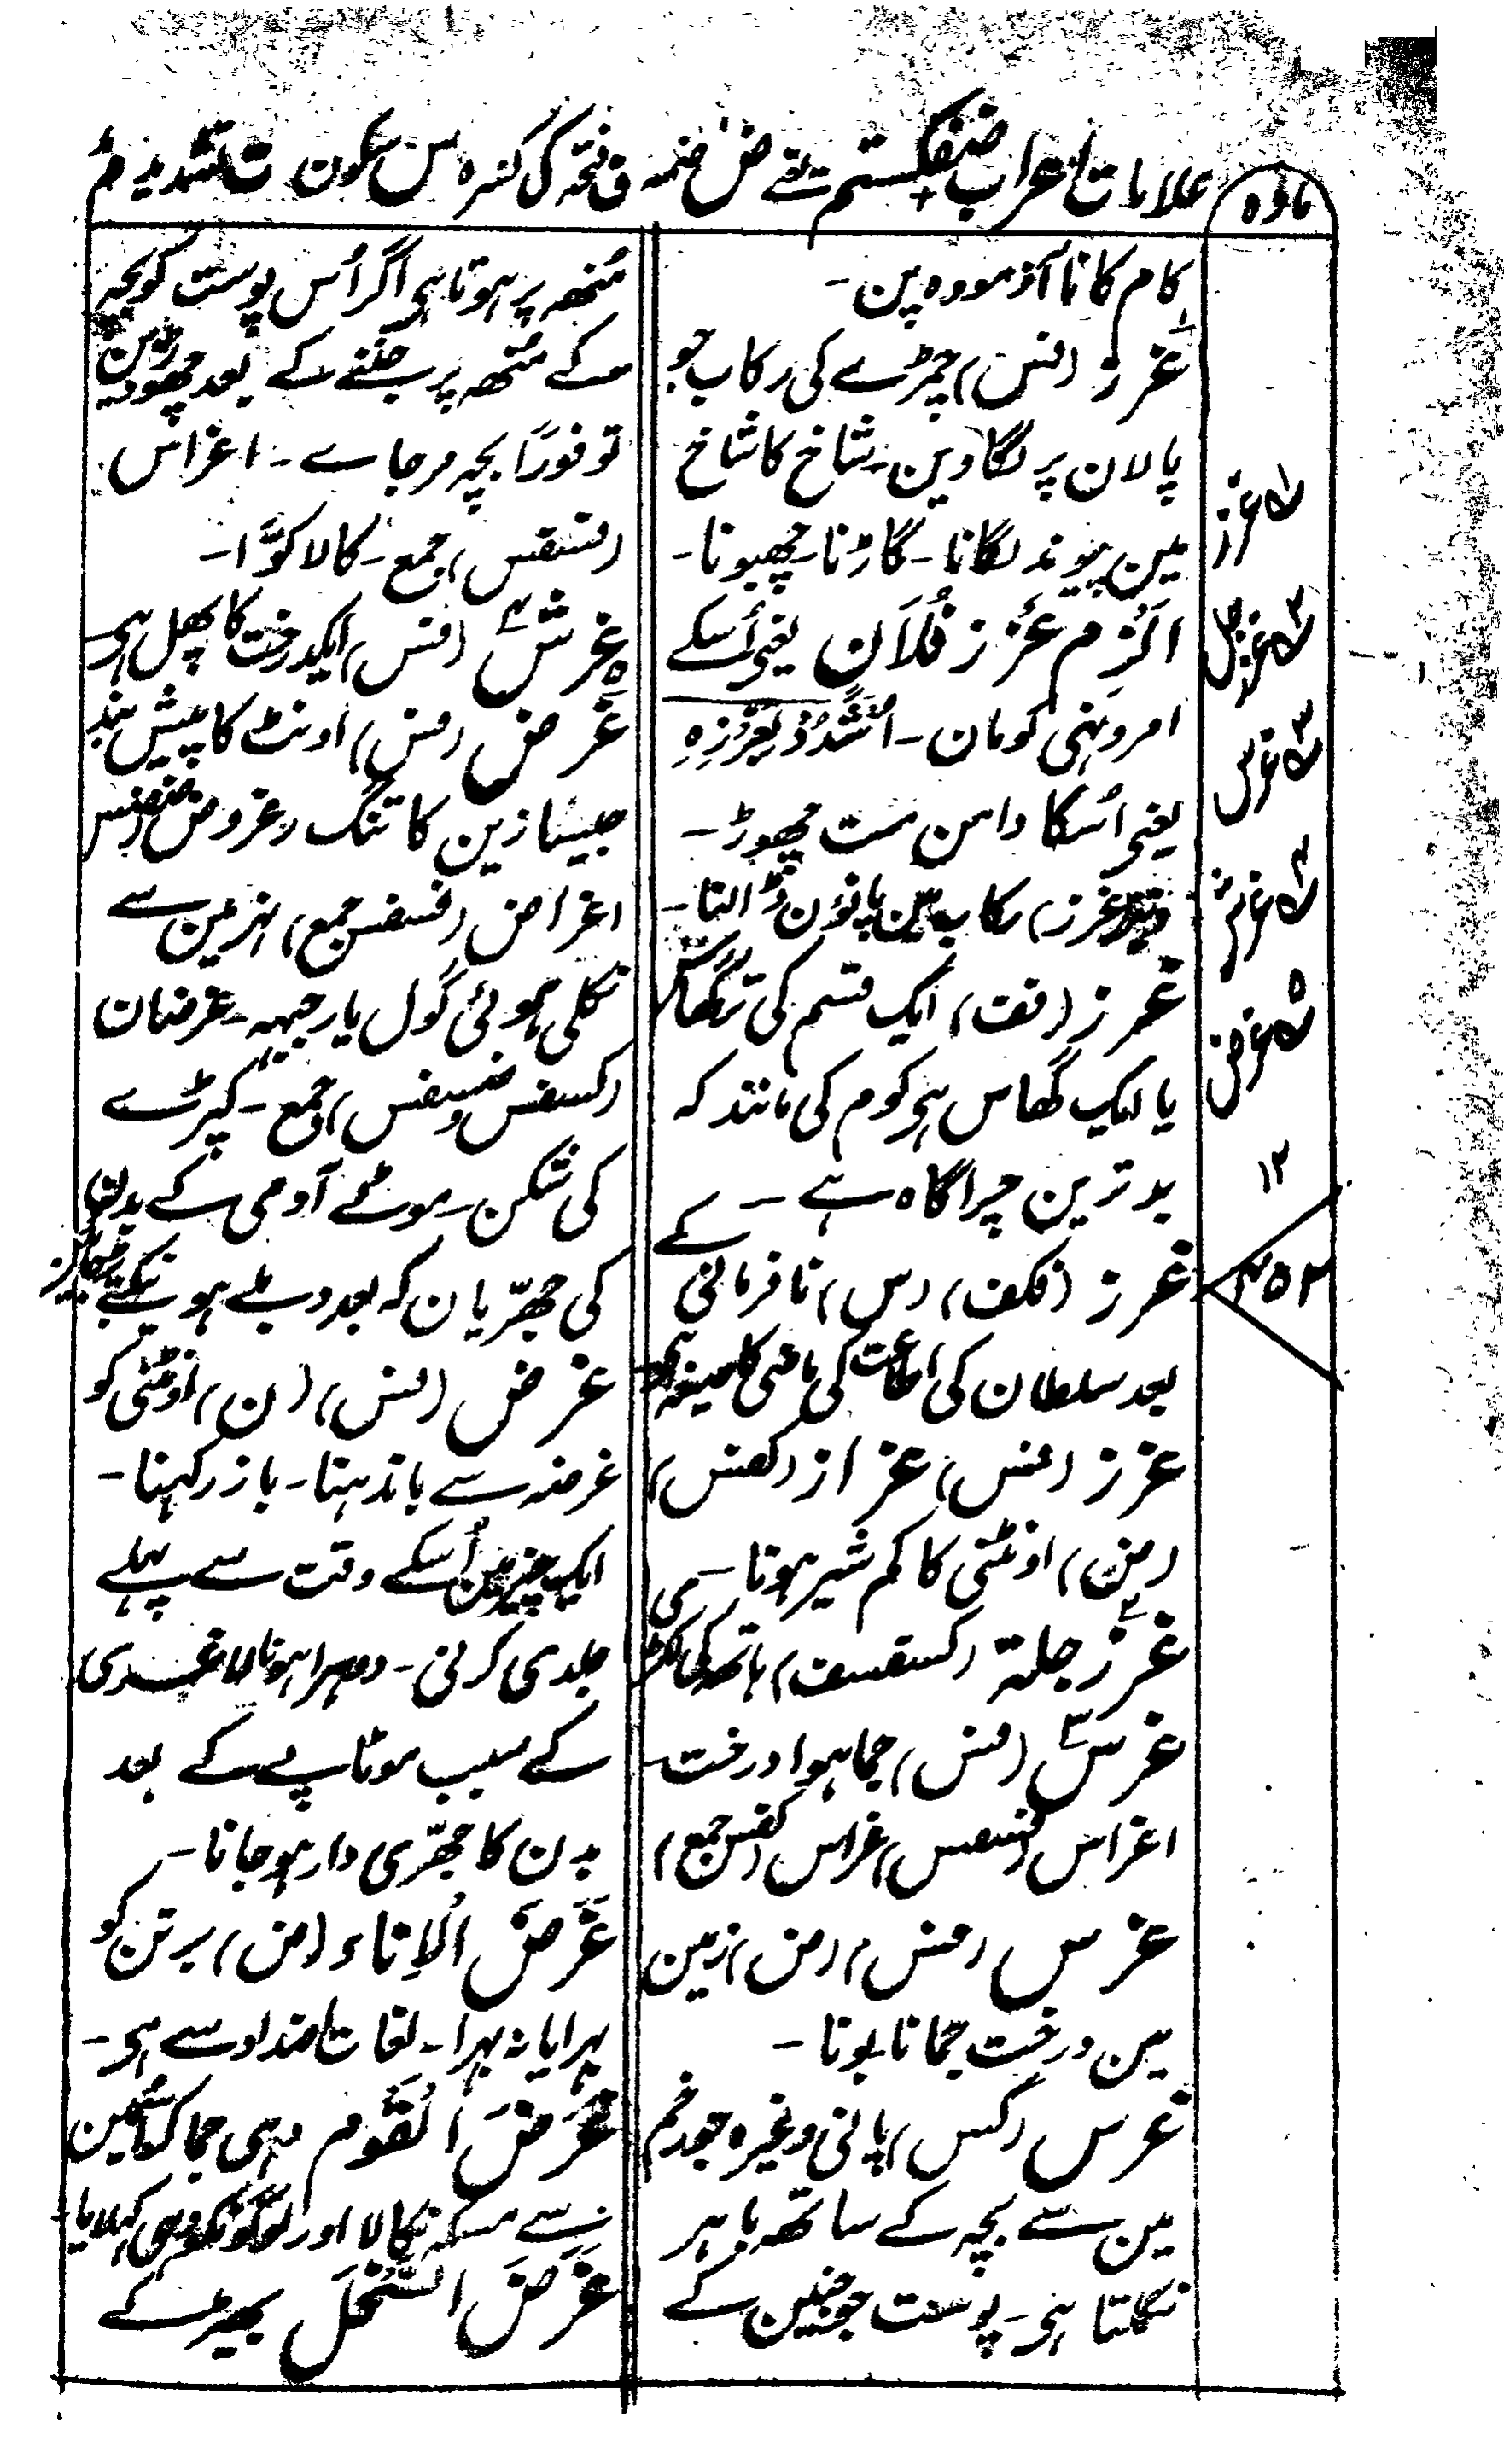 مادہ
علامات اعراب ضفکستم یعنے ض ضمہ ف فتحہ ک کسرہ س سکون ت تشدید م مد
کام کا نا آزمودہ پن۔
غرز (فس) چمڑے کی رکاب جو
پالان پر لگاوین۔ شاخ کا شاخ
مین پیوند لگانا۔ گاڑنا۔ چھبونا۔
الزم غرز فلان یعنی اُسکے
امر و نہی کو مان۔ اشدد بغرزہ
یعنی اُسکا دامن مت چھوڑ۔
غرز) رکاب مین پانؤن ڈالنا۔
غرز (فف) ایک قسم کی گھاس
یا ایک گھاس ہی کوم کی مانند کہ
بدترین چراگاہ ہے۔
غرز (فکف) (س) نافرمانی کے
بعد سلطان کی اطاعت کی ماضی کا صیغہ ہی
غرز (فس) غراز (کفس)
(ض) اونٹنی کا کم شیر ہونا۔
غرزجلة (کسفسف) ہاتھ کی لکڑی
غرس (فس) جما ہوا درخت۔
اغراس (فسفس) غراس (کفس جمع)
غرس (فس) (ض) زمین
مین درخت جمانا بونا۔
غرس (کس) پانی وغیرہ جو رحم
مین سے بچہ کے ساتھ باہر
نکلتا ہی۔ پوست جو جنین کے
مُنھہ پر ہوتا ہی اگر اُس پوست کو بچہ
کے مُنھہ پر جننے کے بعد چھوڑ دین
تو فوراً بچہ مر جاے۔ اغراس
(فسفس) جمع۔ کالا کوّا۔
غرش (فس) ایکدرخت کا پھل ہی
غرض (فس) اونٹ کا پیش بند
جیسا زین کا تنگ (غروض
اغراض (فسفس جمع) سے
نکلی ہوئی گول یا رجبہہ۔ غرضان
(کسفس و ضسفس) جمع۔ کپڑے
کی شکن۔ موٹے آدمی کے بدن
کی جھرّیان کہ بعد دبلے ہونیکے
غرض (فس) (ن) اونٹنی کو
غرضہ سے باندھنا۔ باز رکہنا۔
ایک چیز مین اُسکے وقت سے پہلے
جلدی کرنی۔ دہرا ہونا لاغری
کے سبب موٹاپے کے بعد
بدن کا جھرّی دار ہو جانا۔
غرض الاناء (ض) برتن کو
بہرا یا نہ بہرا۔ لغات اضداد سے ہی۔
غرض القوم دہی جما کر اُسمین
سے مسکہ نکالا اور لوگونکو وہی کہلایا۔
غرض السخل بھیڑ کے
غرز
غرس
غرض
۱۲
۴۵۲